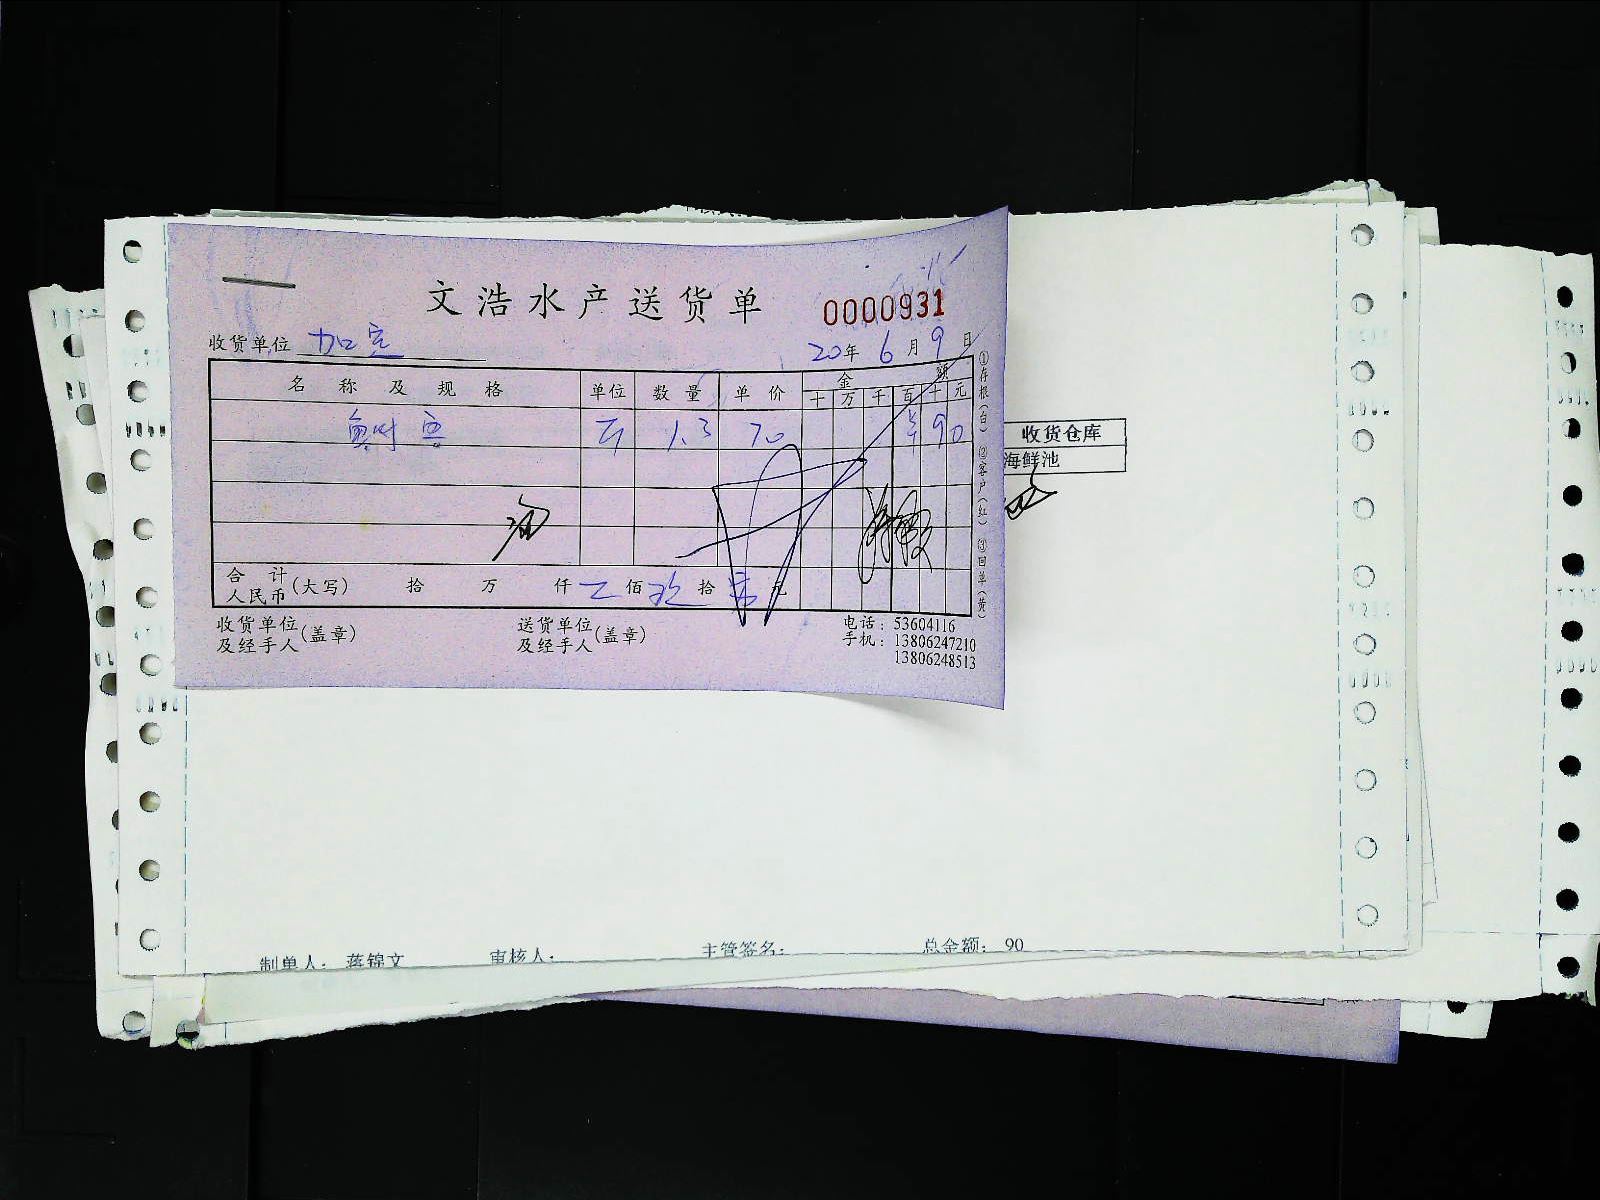 文浩水产送货单 0000931
收货单位 加宝 20年6月9日
名称及规格 单位 数量 单价 金额
十 万 千 百 十 元
斤 1.3 70 ¥ 90
合计人民币(大写) 拾 万 仟 佰 玖 拾 零 元
收货单位及经手人(盖章) 送货单位及经手人(盖章) 电话：53604116
手机：13806247210
13806248513
①存根(白) ②客户(红) ③回单(黄)
收货仓库
海鲜池
制单人：蒋锦文 审核人： 主管签名： 总金额：90